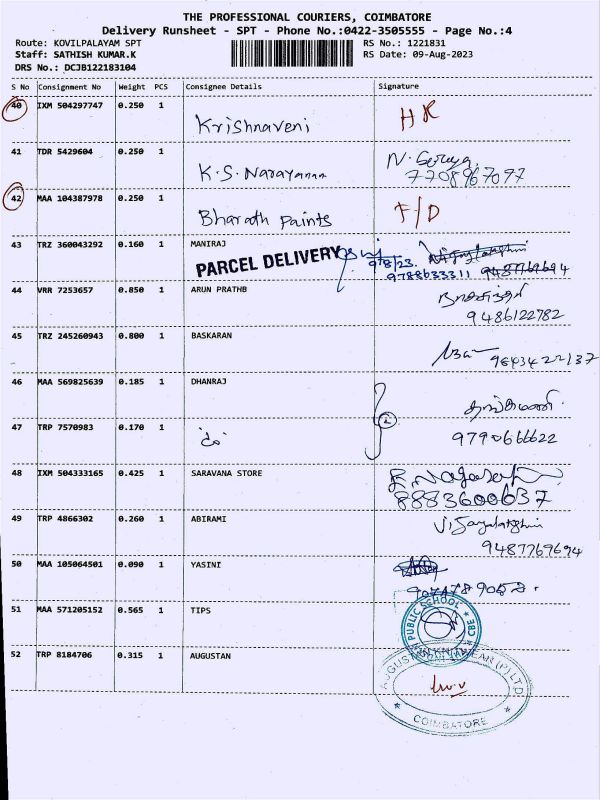 THE PROFESSIONAL COURIERS, COIMBATORE
Delivery Runsheet - SPT - Phone No.:0422-3505555 - Page No.:4
Route: KOVILPALAYAM SPT RS No.: 1221831
Staff: SATHISH KUMAR.K RS Date: 09-Aug-2023
DRS No.: DCJB122183104
S No Consignment No Weight PCS Consignee Details Signature
40 IXM 504297747 0.250 1
Krishnaveni HR
41 TDR 5429604 0.250 1
K.S. Narayanan N.
7708967097
42 MAA 104387978 0.250 1
Bharath Paints F/D
43 TRZ 360043292 0.160 1 MANIRAJ
PARCEL DELIVERY 9/8/23.
9788633311 9487769694
44 VRR 7253657 0.850 1 ARUN PRATHB
9486122782
45 TRZ 245260943 0.800 1 BASKARAN
9843422137
46 MAA 569825639 0.185 1 DHANRAJ
தங்கமணி
47 TRP 7570983 0.170 1
9790666622
48 IXM 504333165 0.425 1 SARAVANA STORE
8883600637
49 TRP 4866302 0.260 1 ABIRAMI
Vijayalakshmi
9487769694
50 MAA 105064501 0.090 1 YASINI
51 MAA 571205152 0.565 1 TIPS
PUBLIC SCHOOL CBE
52 TRP 8184706 0.315 1 AUGUSTAN
AUGUSTAN KNITWEAR (P) LTD.
COIMBATORE